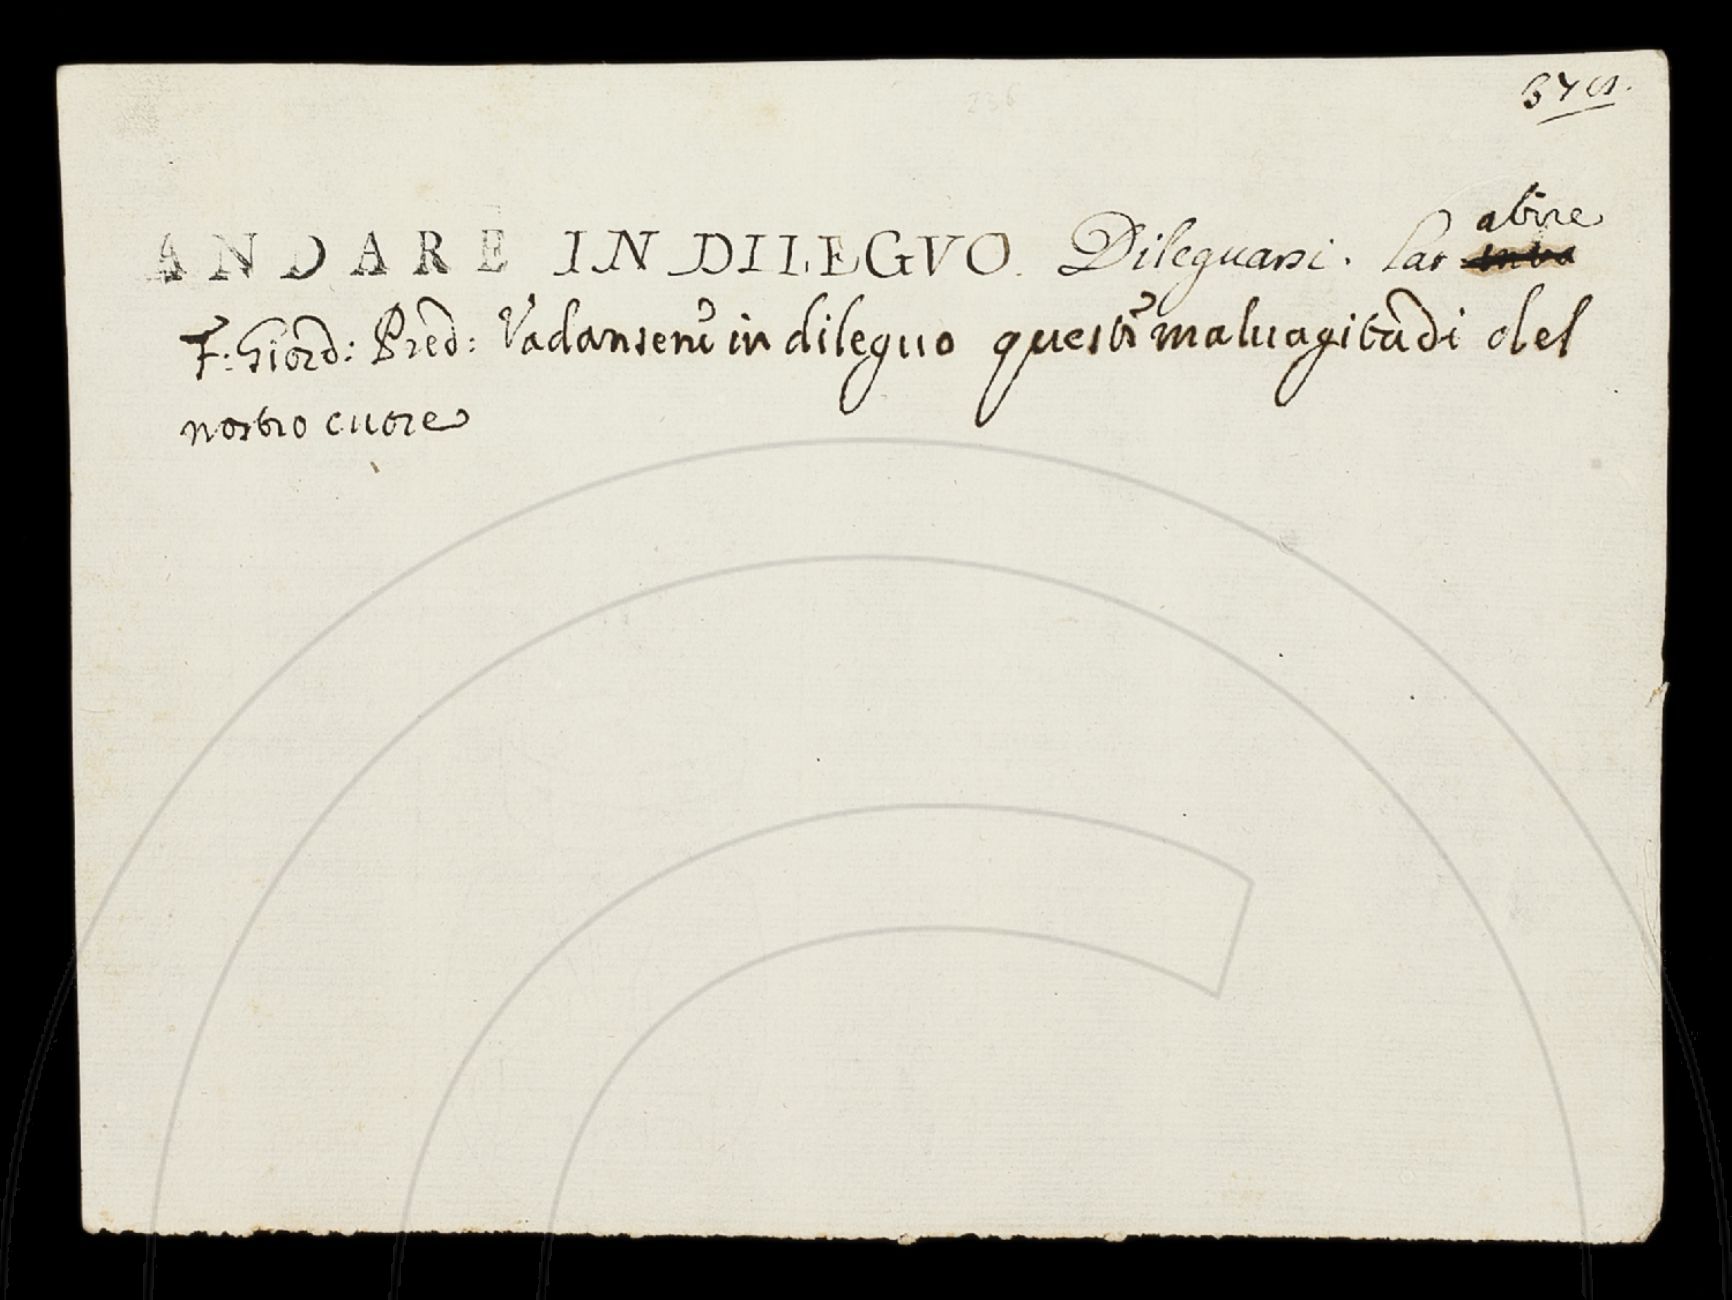 ANDARE IN DILEGVO. Dileguarsi. Lat abire
F: Giord: Pred: Vadansene in dileguo queste maluagitudi del
nostro cuore